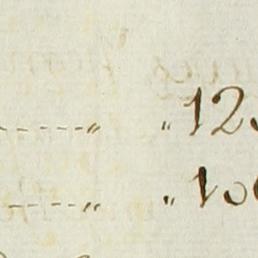 -----„ „ 12
-----„ „ 10